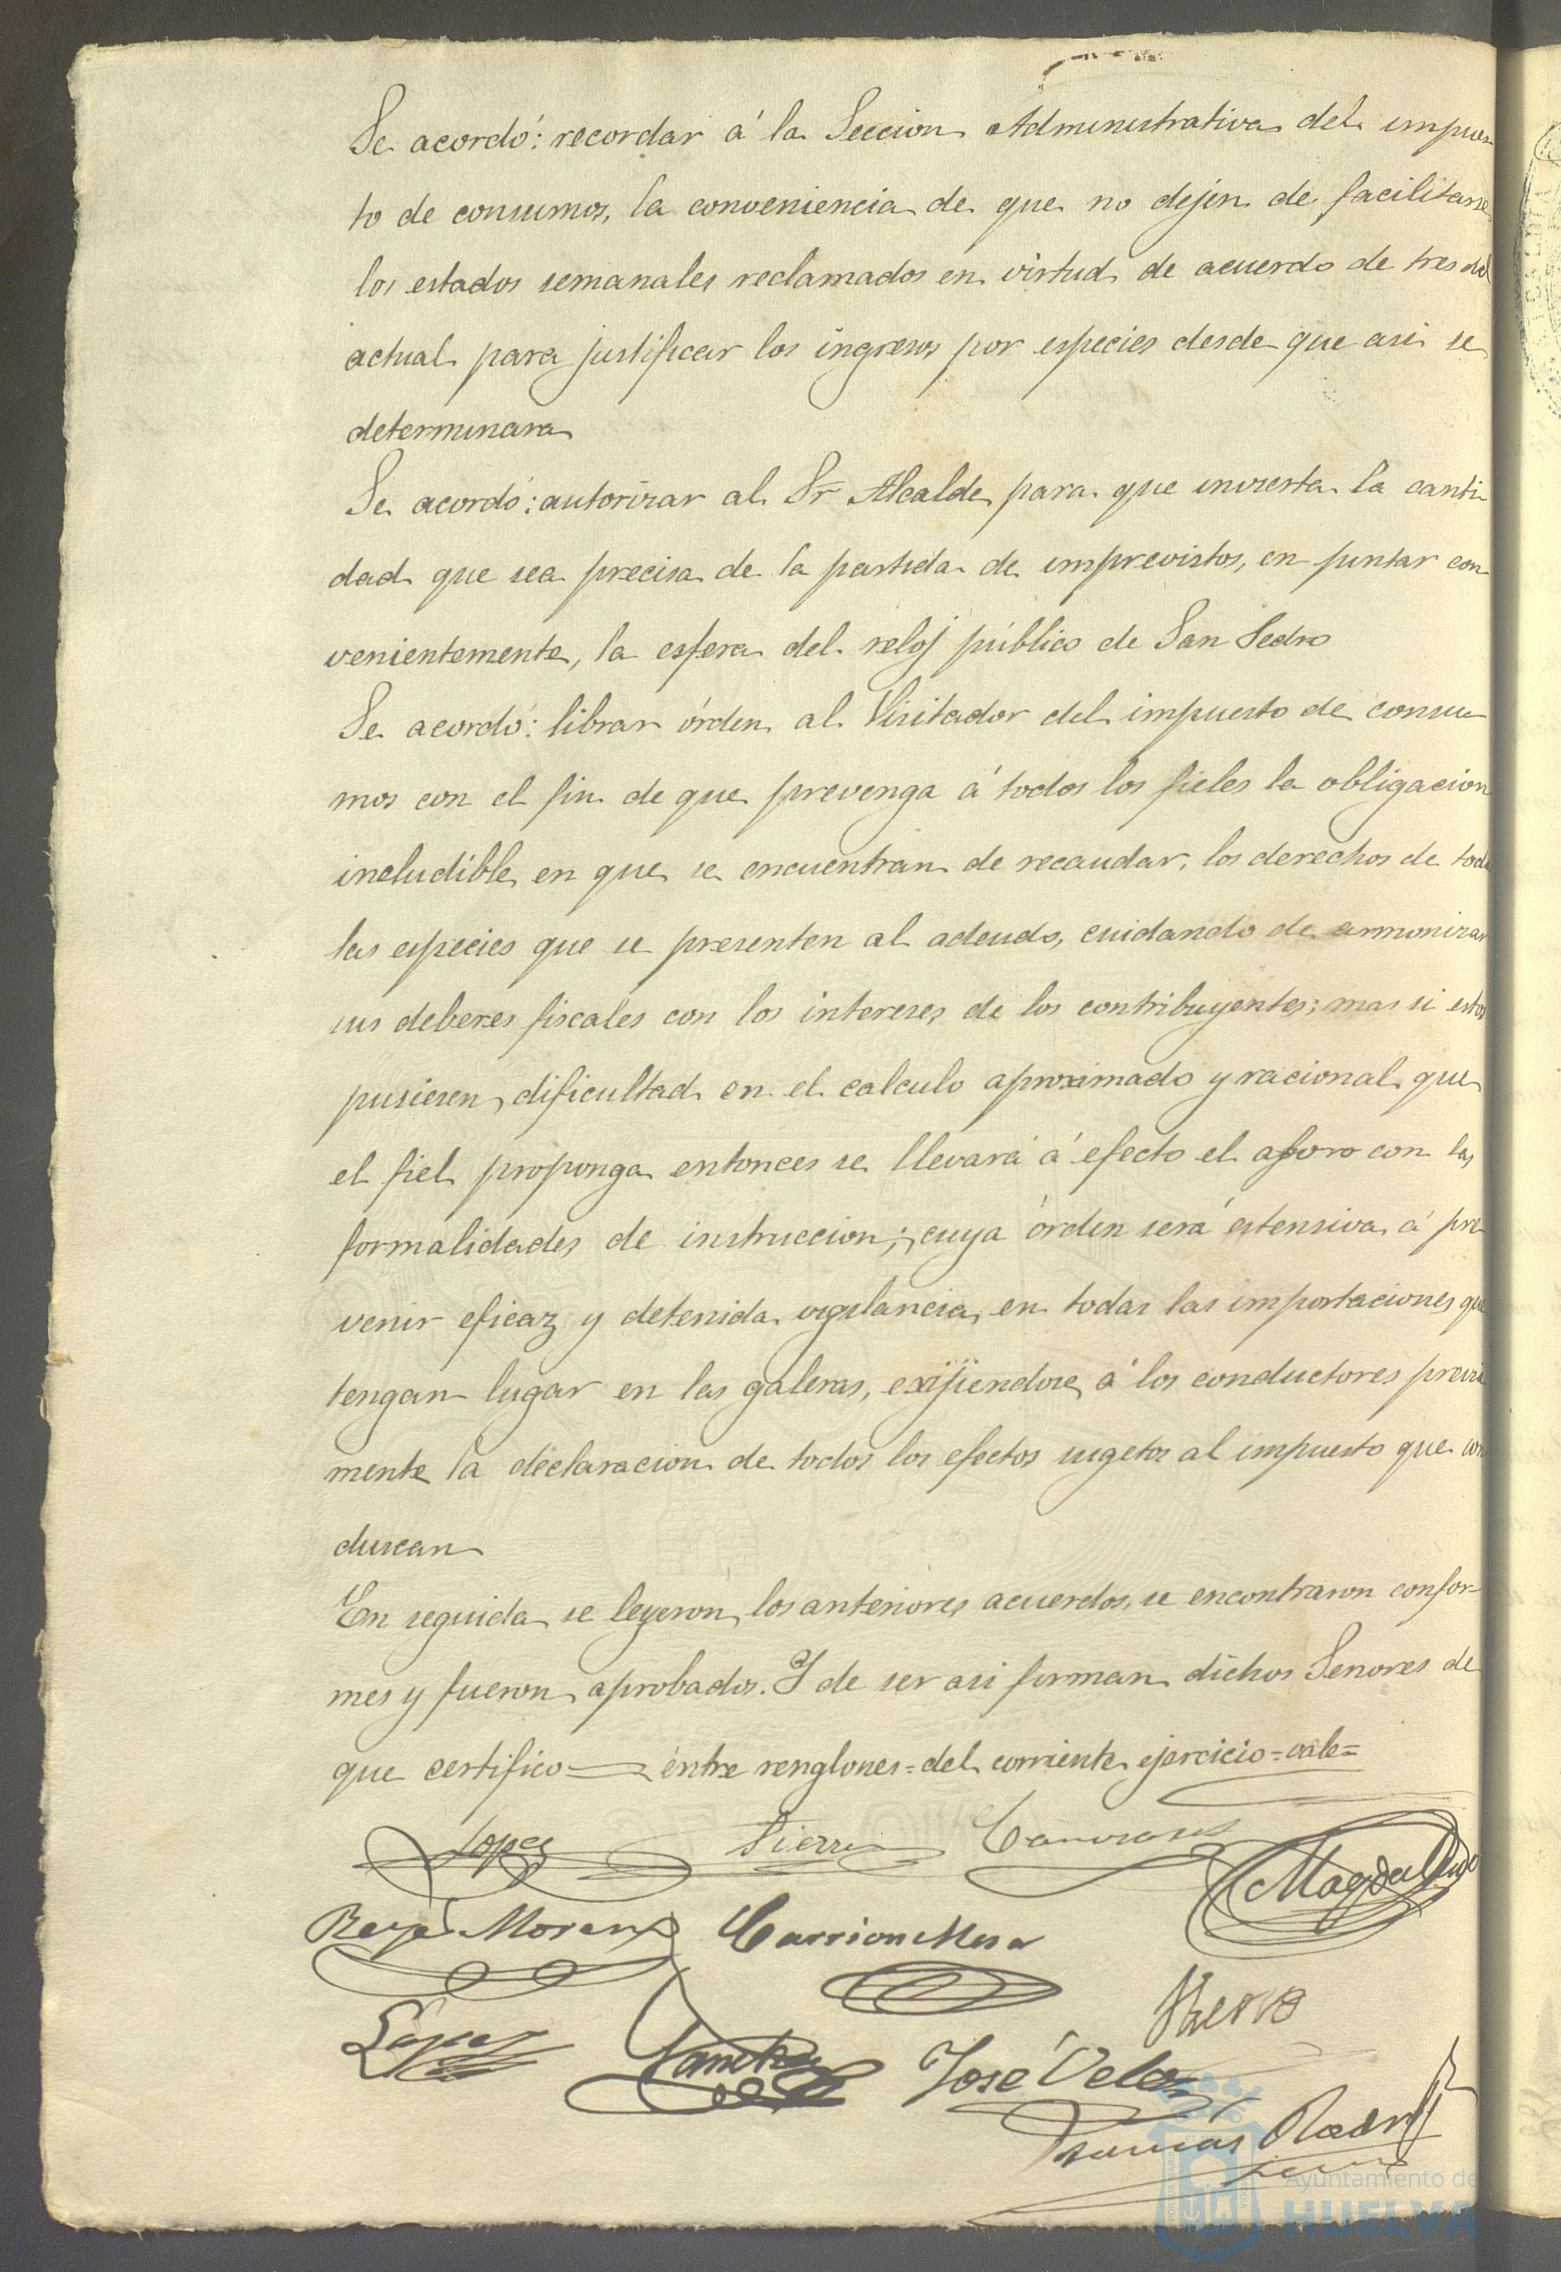 Se acordó: recordar á la Seccion Administrativa del impues
to de consumos, la conveniencia de que no dejen de facilitarse
los estados semanales reclamados en virtud de acuerdo de tres del
actual para justificar los ingresos por especies desde que asi se
determinara
Se acordó: autorizar al Sr Alcalde para que invierta la canti
dad que sea precisa de la partida de imprevistos, en pintar con
venientemente, la esfera del reloj público de San Pedro
Se acordó: librar órden al Visitador del impuesto de consu
mos con el fin de que prevenga á todos los fieles la obligacion
ineludible en que se encuentran de recaudar, los derechos de todas
las especies que se presenten al adeudo, cuidando de armonizar
sus deberes fiscales con los intereses de los contribuyentes; mas si estos
pusiesen dificultad en el calculo aproximado y racional que
el fiel proponga entonces se llevará á efecto el aforo con las
formalidades de instruccion; cuya órden será estensiva á pre
venir eficaz y detenida vigilancia en todas las importaciones que
tengan lugar en las galeras, exijiendose á los conductores previa
mente la declaracion de todos los efectos sugetos al impuesto que con
duscan
En seguida se leyeron los anteriores acuerdos, se encontraron confor-
mes y fueron aprobados. Y de ser asi firman dichos Señores de
que certifico = entre renglones = del corriente ejercicio = vale =
Lopez Sierra
Rey Moreno Carrion Mesa
Lopez Sanchez José Velez
Tomás Rodrig
Ayuntamiento de
HUELVA